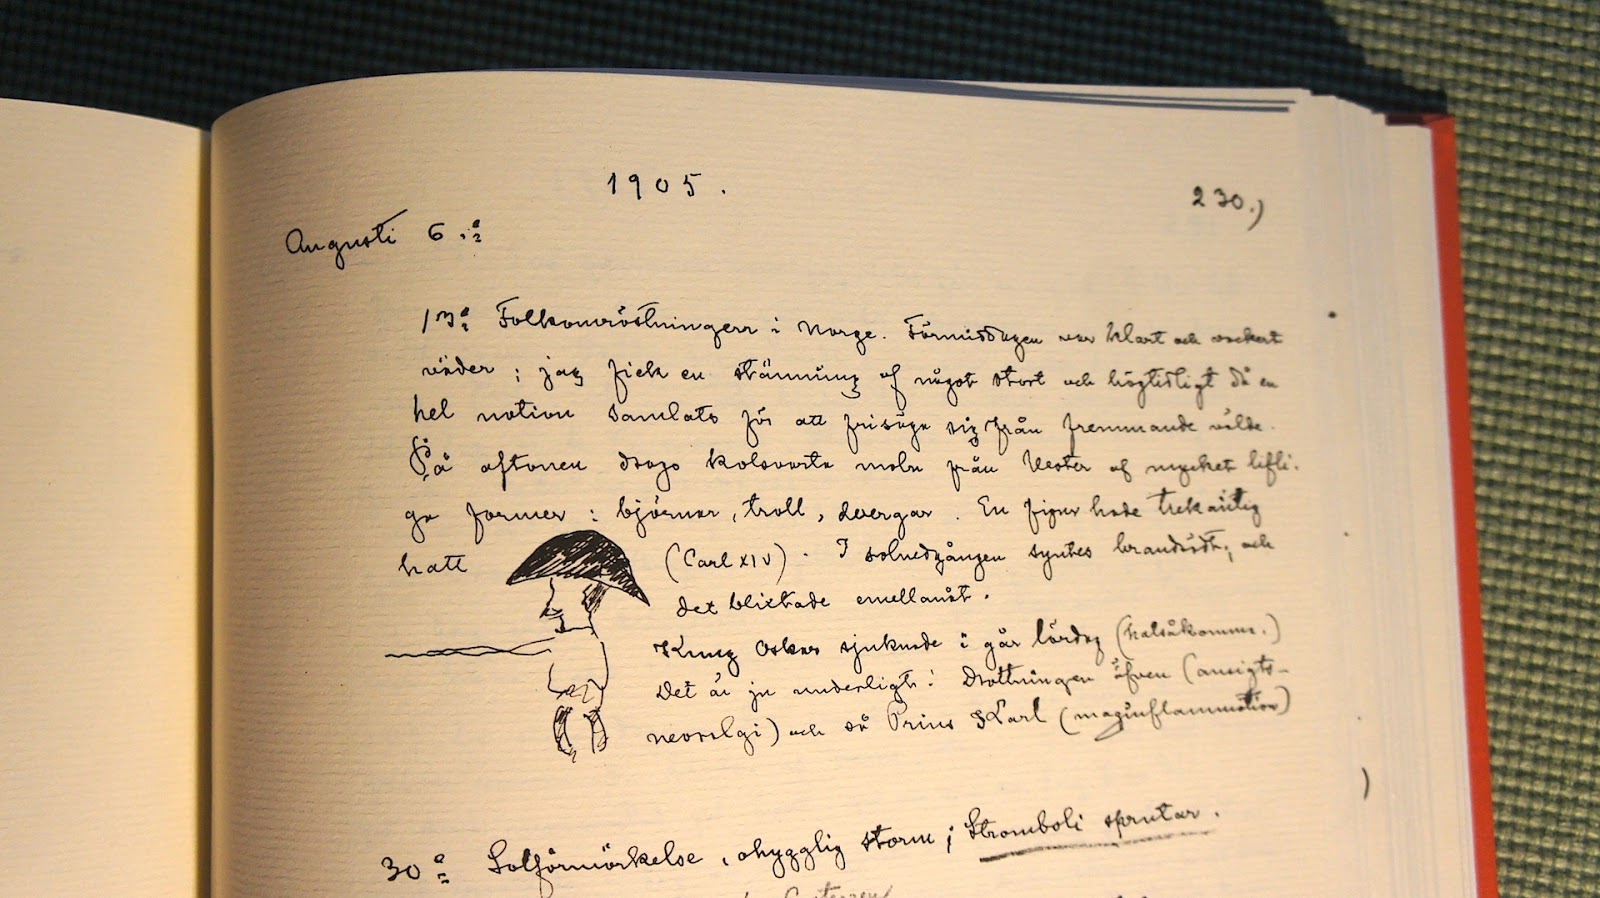 1905.
230.)
Augusti 6.e
13e Folkomröstningen i Norge. Förmiddagen var klart och vackert
väder; jag fick en stämning af något stort och högtidligt då en
hel nation samlats för att frisäga sig från fremmande välde.
På aftonen drogo kolsvarta moln från Vester af mycket lifli-
ga former: björnar, troll, dvergar. En figur hade trekantig
hatt (Carl XIV). I solnedgången syntes brandrödt, och
det blixtrade emellanåt.
Kung Oskar sjuknade i går lördag (halsåkomma.)
Det är ju underligt! Drottningen äfven (ansigts-
nevralgi) och så Prins Karl (maginflammation)
30e Solförmörkelse, ohygglig storm; Stromboli sprutar.